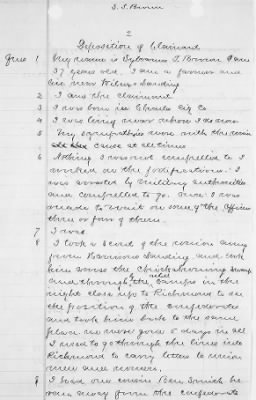 S. T. Brown
2
Deposition of Claimant
Ques 1 My name is Sylvanus T. Brown I am
37 years old. I am a farmer and
live near Wilcox Landing
2 I am the claimant
3 I was born in Charles City Co
4 I was living near where I do now
5 My sympathies were with the union
cause at all times
6 Nothing I was not compelled to I
worked on the fortifications. I
was arrested by military authorities
and compelled to go. Then I was
made to wait on some of the officers
three or four of them.
7 I was
8 I took a scout of the union army
from Harrisons Landing and took
him across the Chickahominy swamp
and through the rebel camps in the
night close up to Richmond to see
the position of the confederates
and took him back to the same
place we were gone 5 days in all
I used to go through the lines into
Richmond to carry letters to union
men and women.
9 I had one cousin Ben Smith he
ran away from the confederate